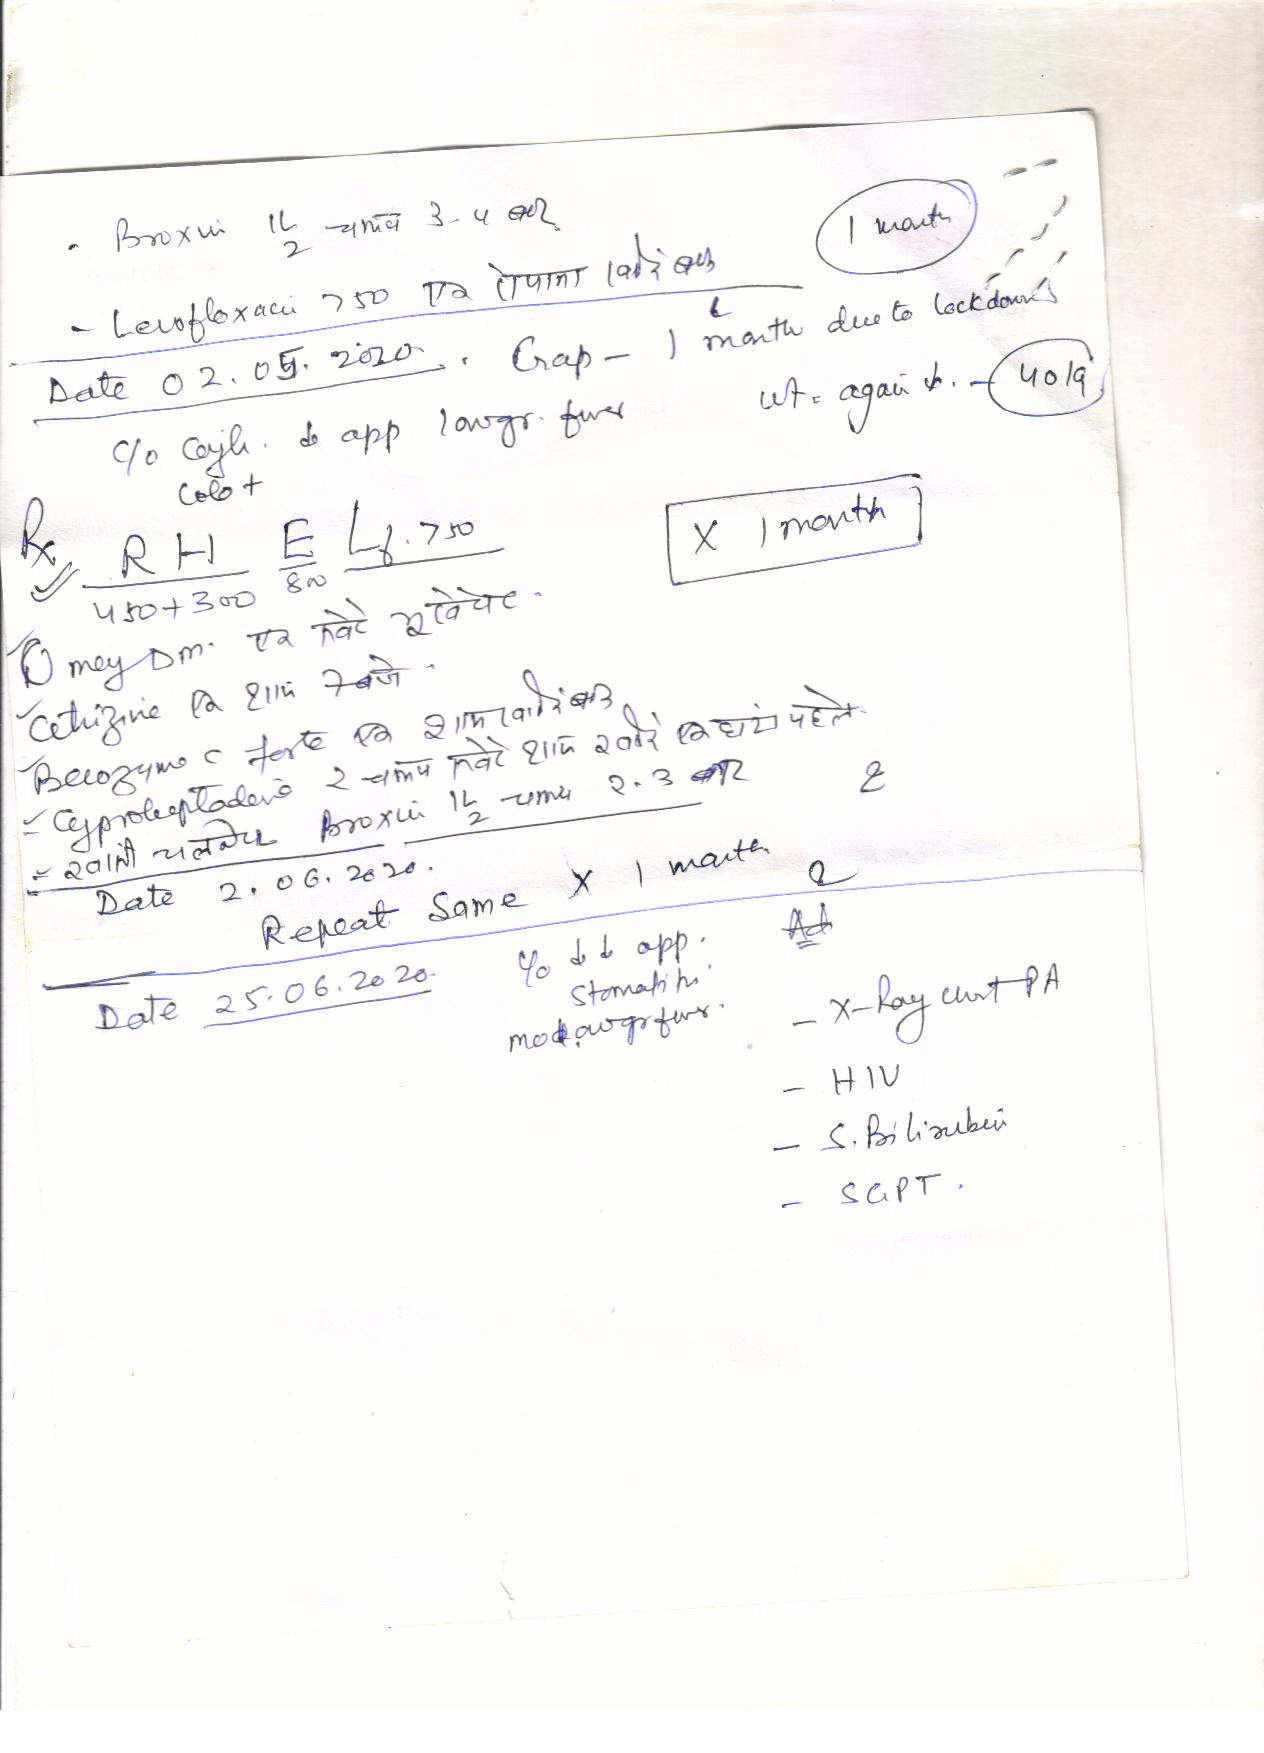 . Broxin 1½ चम्मच 3-4 बार
1 month
- Levofloxacin 750 एक रोजाना खाने बाद
Date 02.05.2020 . Gap - 1 month due to lockdown
c/o Cough. ↓ app low gr. fever
wt = again ↓. - 40 kg
Cold +
Rx R H E Lf. 750
450+300 800
X 1 month
Omey Dm. एक सवेरे
Cetrizine एक शाम 7 बजे.
Becozyme C forte एक शाम खाने बाद
- Cyproheptadine 2 चम्मच सवेरे शाम खाने एक घंटा पहले.
- Broxin 1½ चम्मच 2-3 बार
Date 2.06.2020.
Repeat Same X 1 month
Date 25.06.2020.
c/o ↓↓ app.
Stomatitis
fever.
Ad
- X-Ray chest PA
- HIV
- S. Bilirubin
- SGPT.